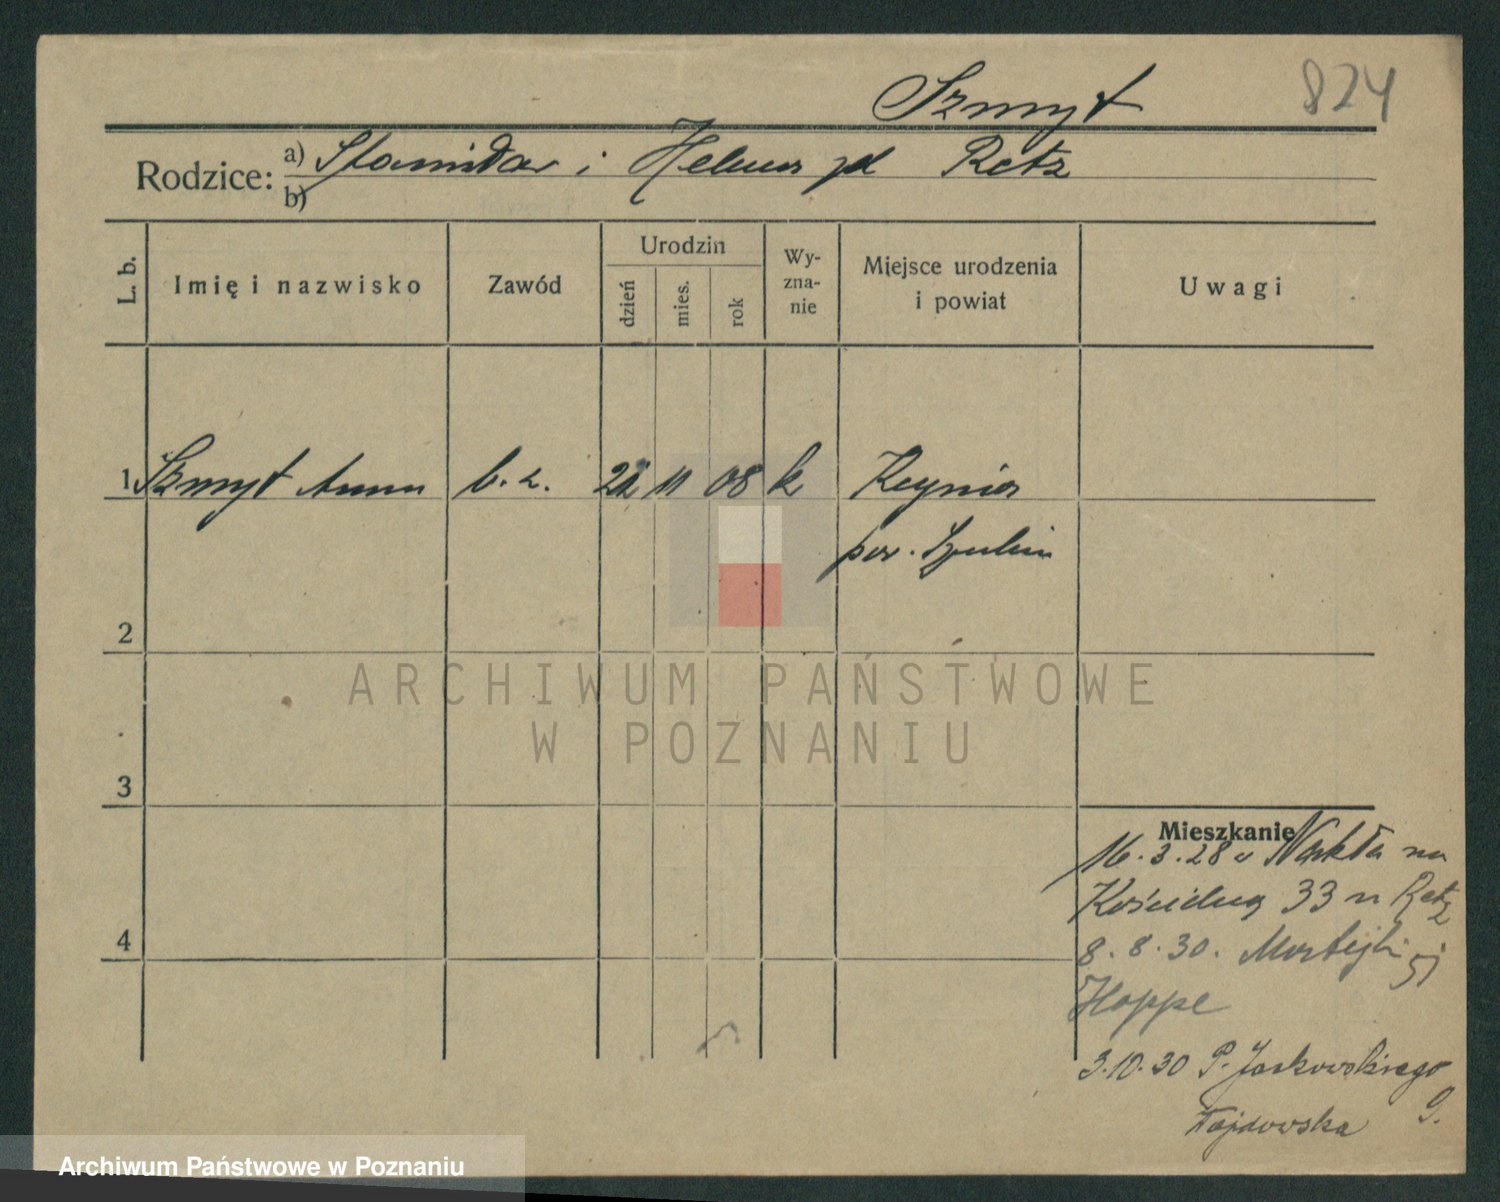 824
Szmyt
Rodzice: a) Stanisław i Helena zd Retz
b)
L. b.
Imię i nazwisko
Zawód
Urodzin
dzień
mies.
rok
Wy-
zna-
nie
Miejsce urodzenia
i powiat
Uwagi
1 Szmyt Anna b. z. 22 11 08 k Kcynia
pow. Szubin
2
ARCHIWUM PAŃSTWOWE
W POZNANIU
3
4
Mieszkanie
16.3.28 z Nakła na
33 u Retz
8.8.30. Matejki 51
Hoppe
3.10.30 P. Jackowskiego
9.
Archiwum Państwowe w Poznaniu